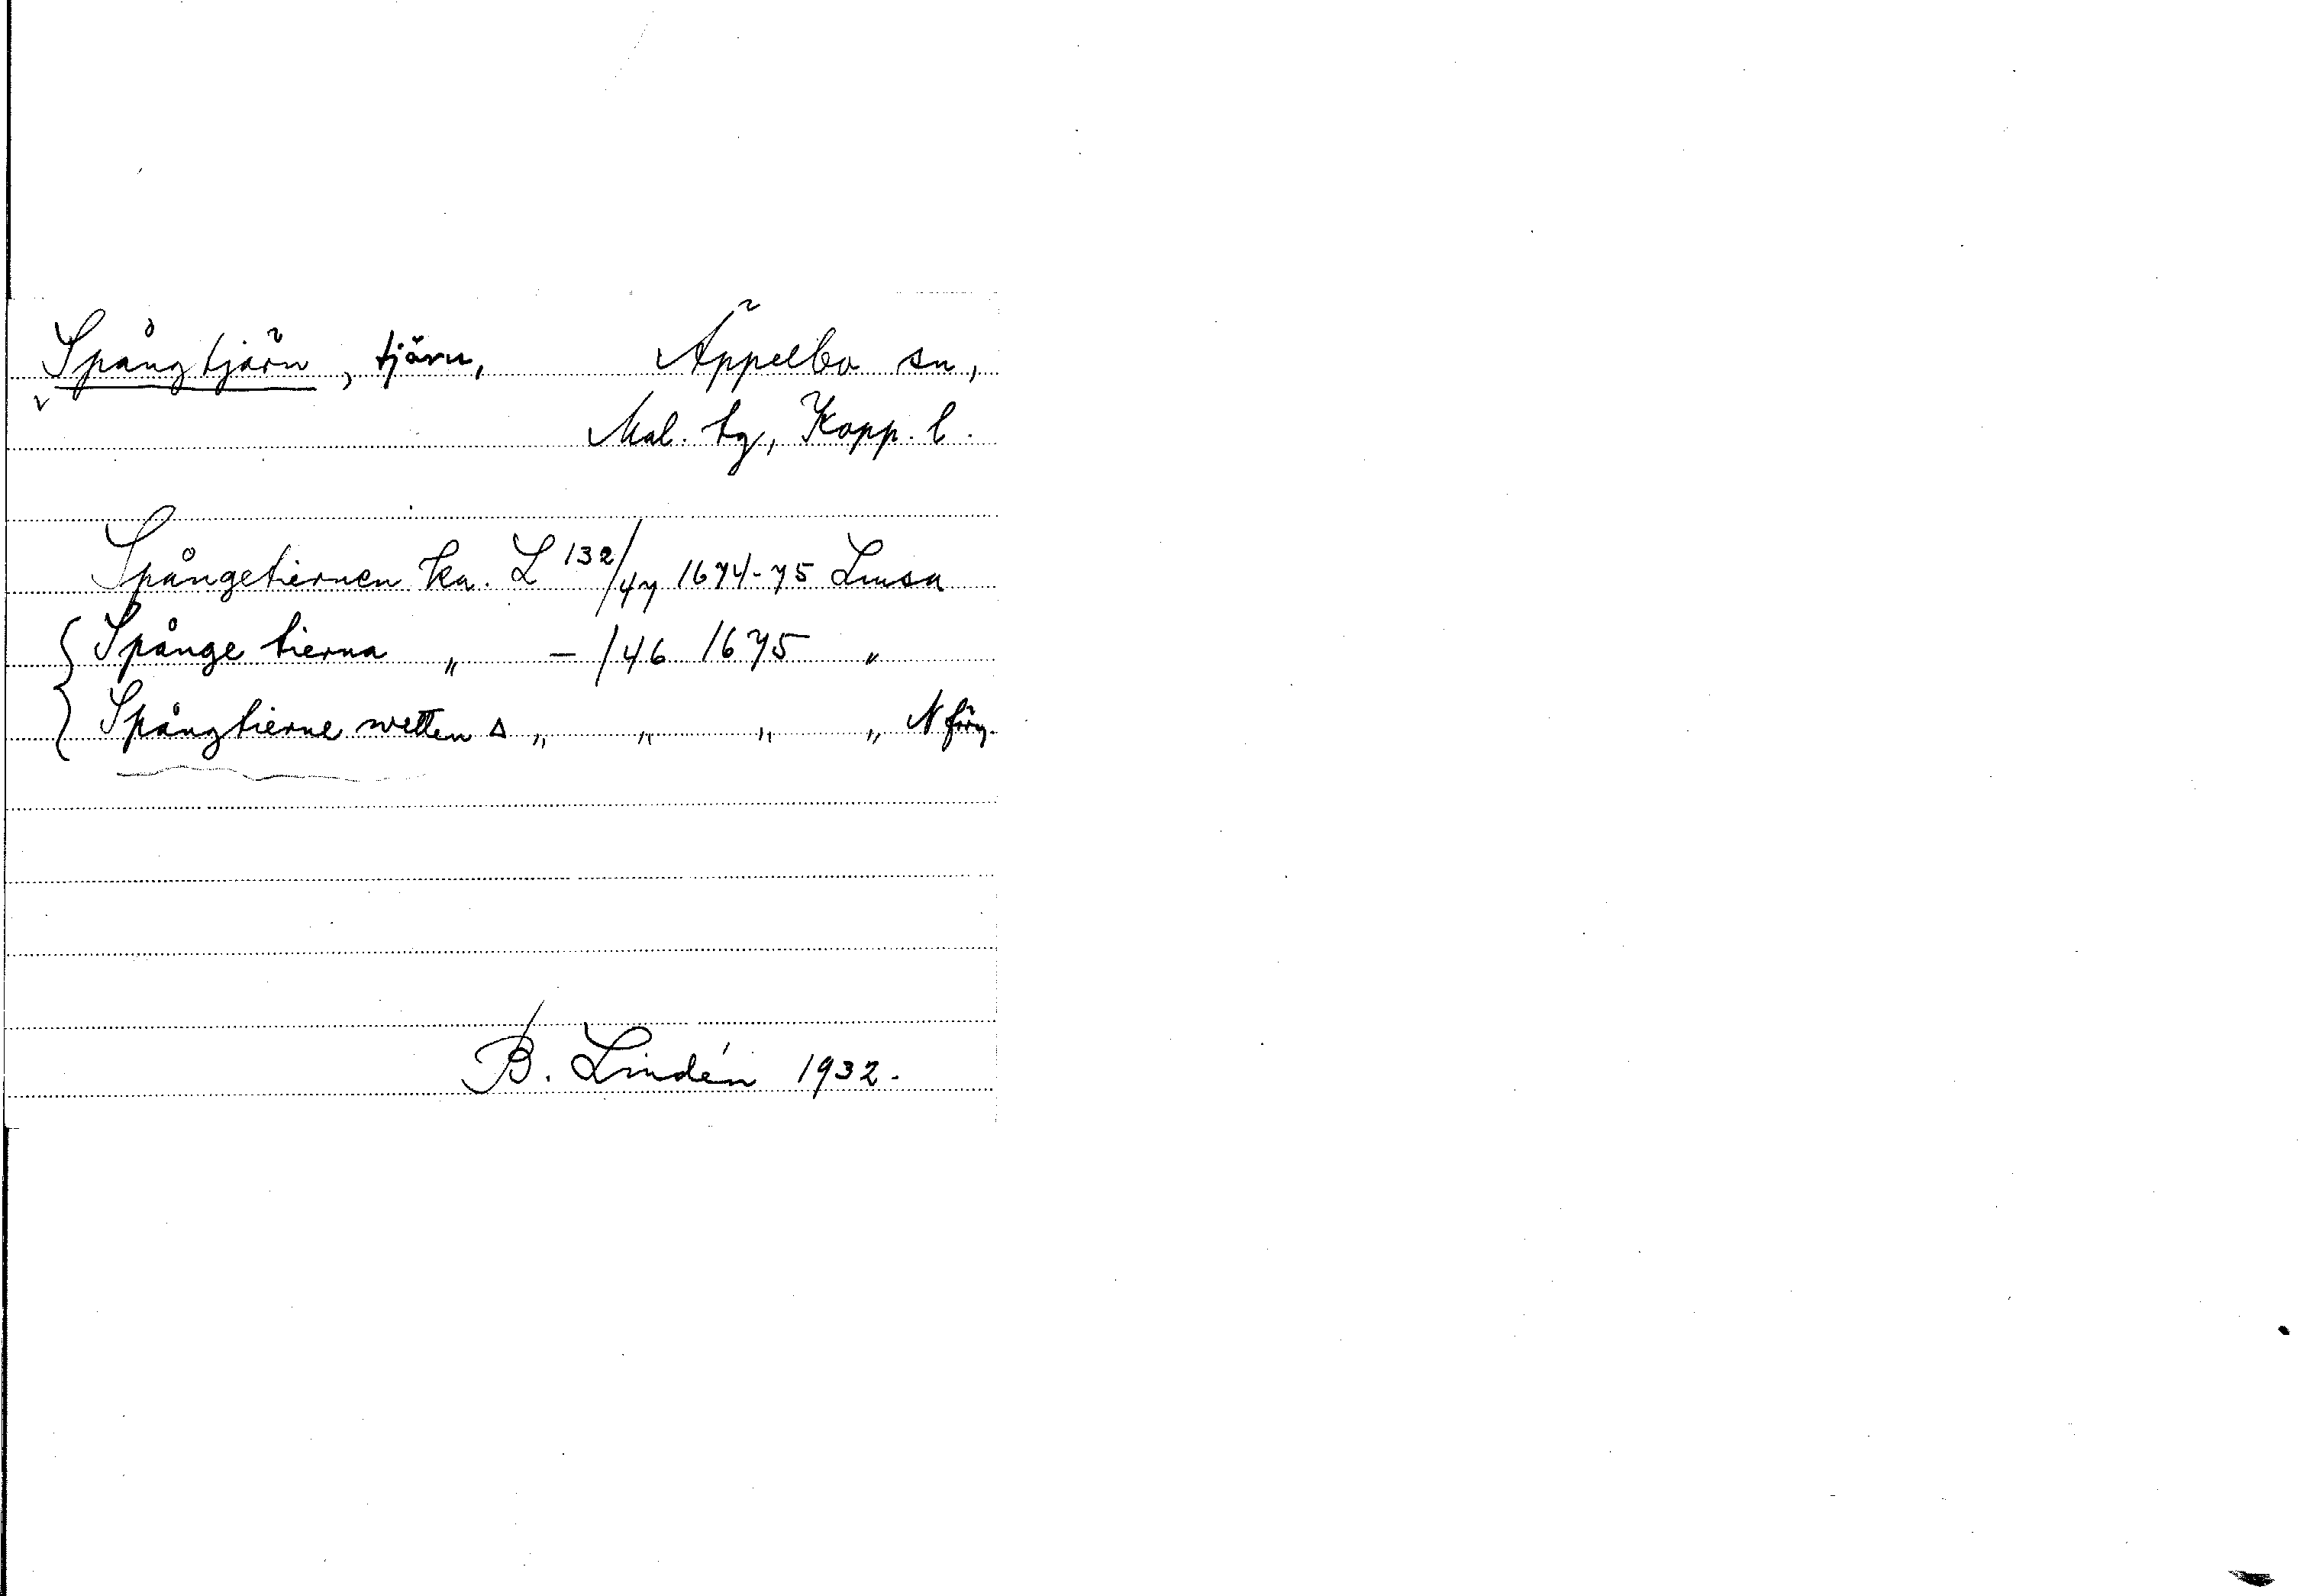 Spångtjärn, tjärn, Äppelbo sn,
Mal. tg, Kopp. l.
Spångetiernen ka. L 132/47 1674-75 Lmsa
{ Spånge tierna „ – /46 1675 „
{ Spångtierne wetten ∆ „ „ „ „ N förg.
B. Lindén 1932.